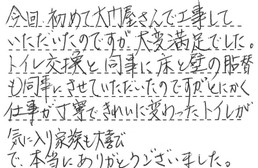 今回、初めて大門屋さんで工事して
いただいたのですが、大変満足でした。
トイレ交換と同時に床と壁の貼替
も同事にさせていただいたのですがとにかく
仕事が丁寧できれいに変わったトイレが
気に入り家族も大喜び
で、本当にありがとうございました。